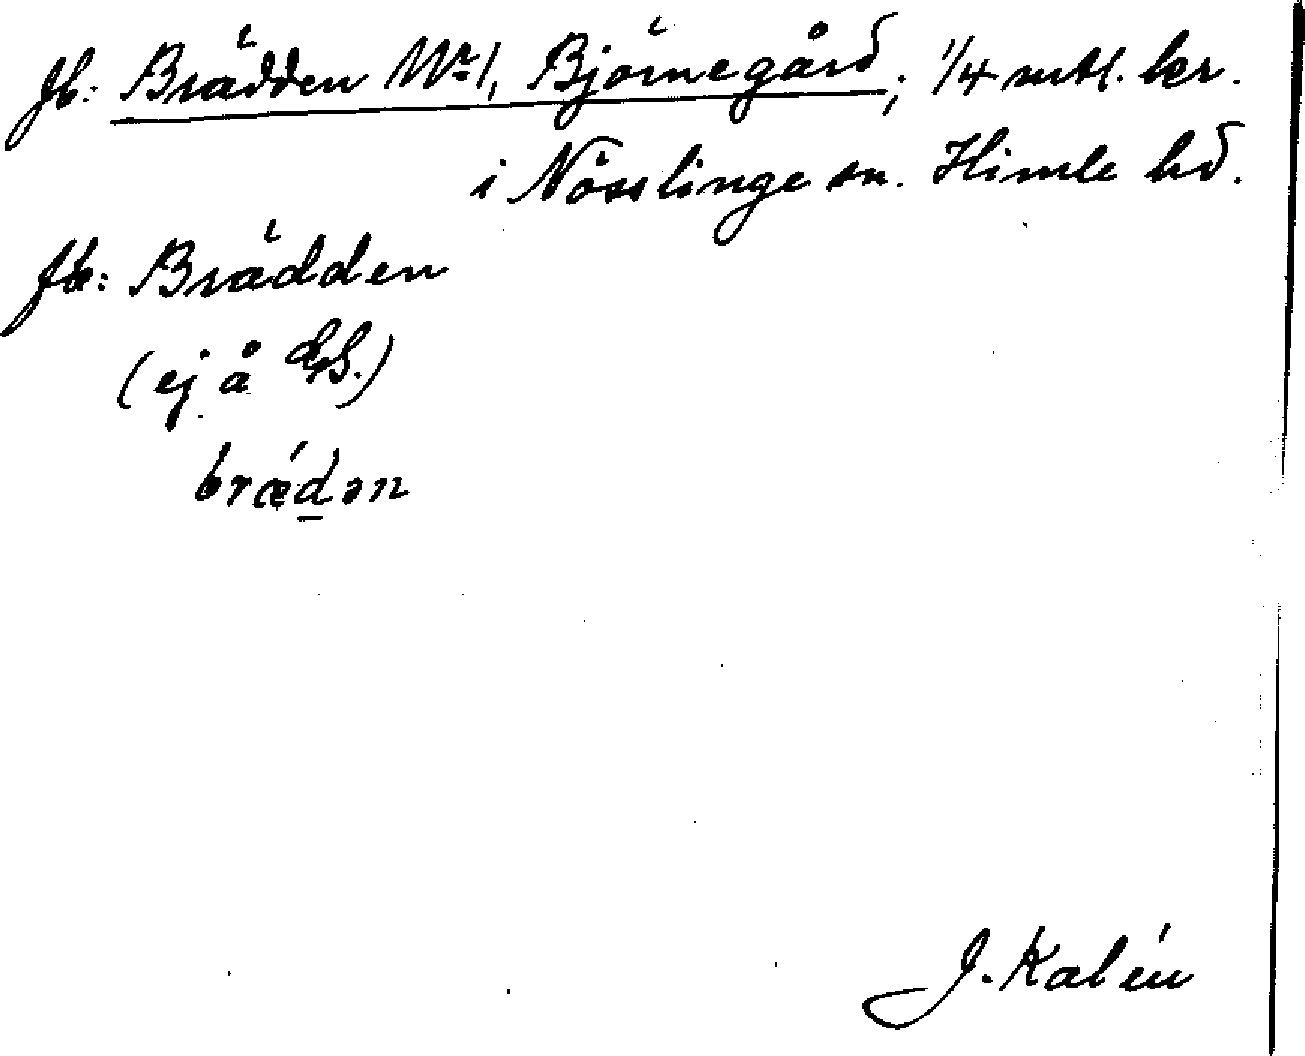 Jb: Brädden Nr 1, Björnegård; 1/4 mtl. kr.
i Nösslinge sn. Himle hd.
Jb: Brädden
(ej å GS.)
bræ´dən
J. Kalén